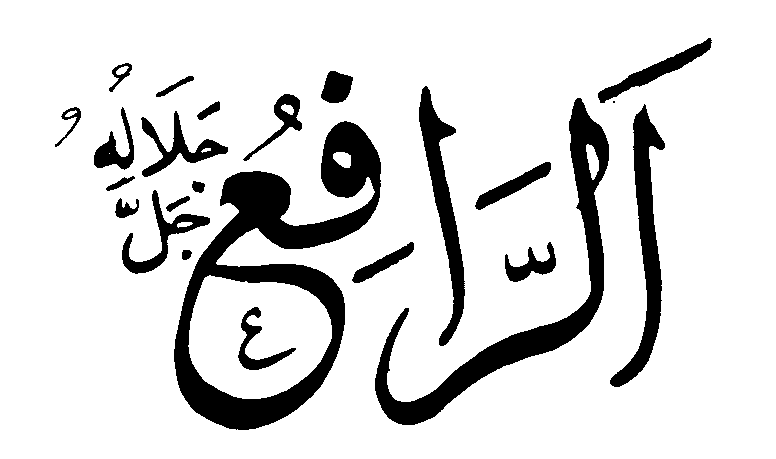 اَلرَّافِعُ
جَلَّ جَلَالُهُ